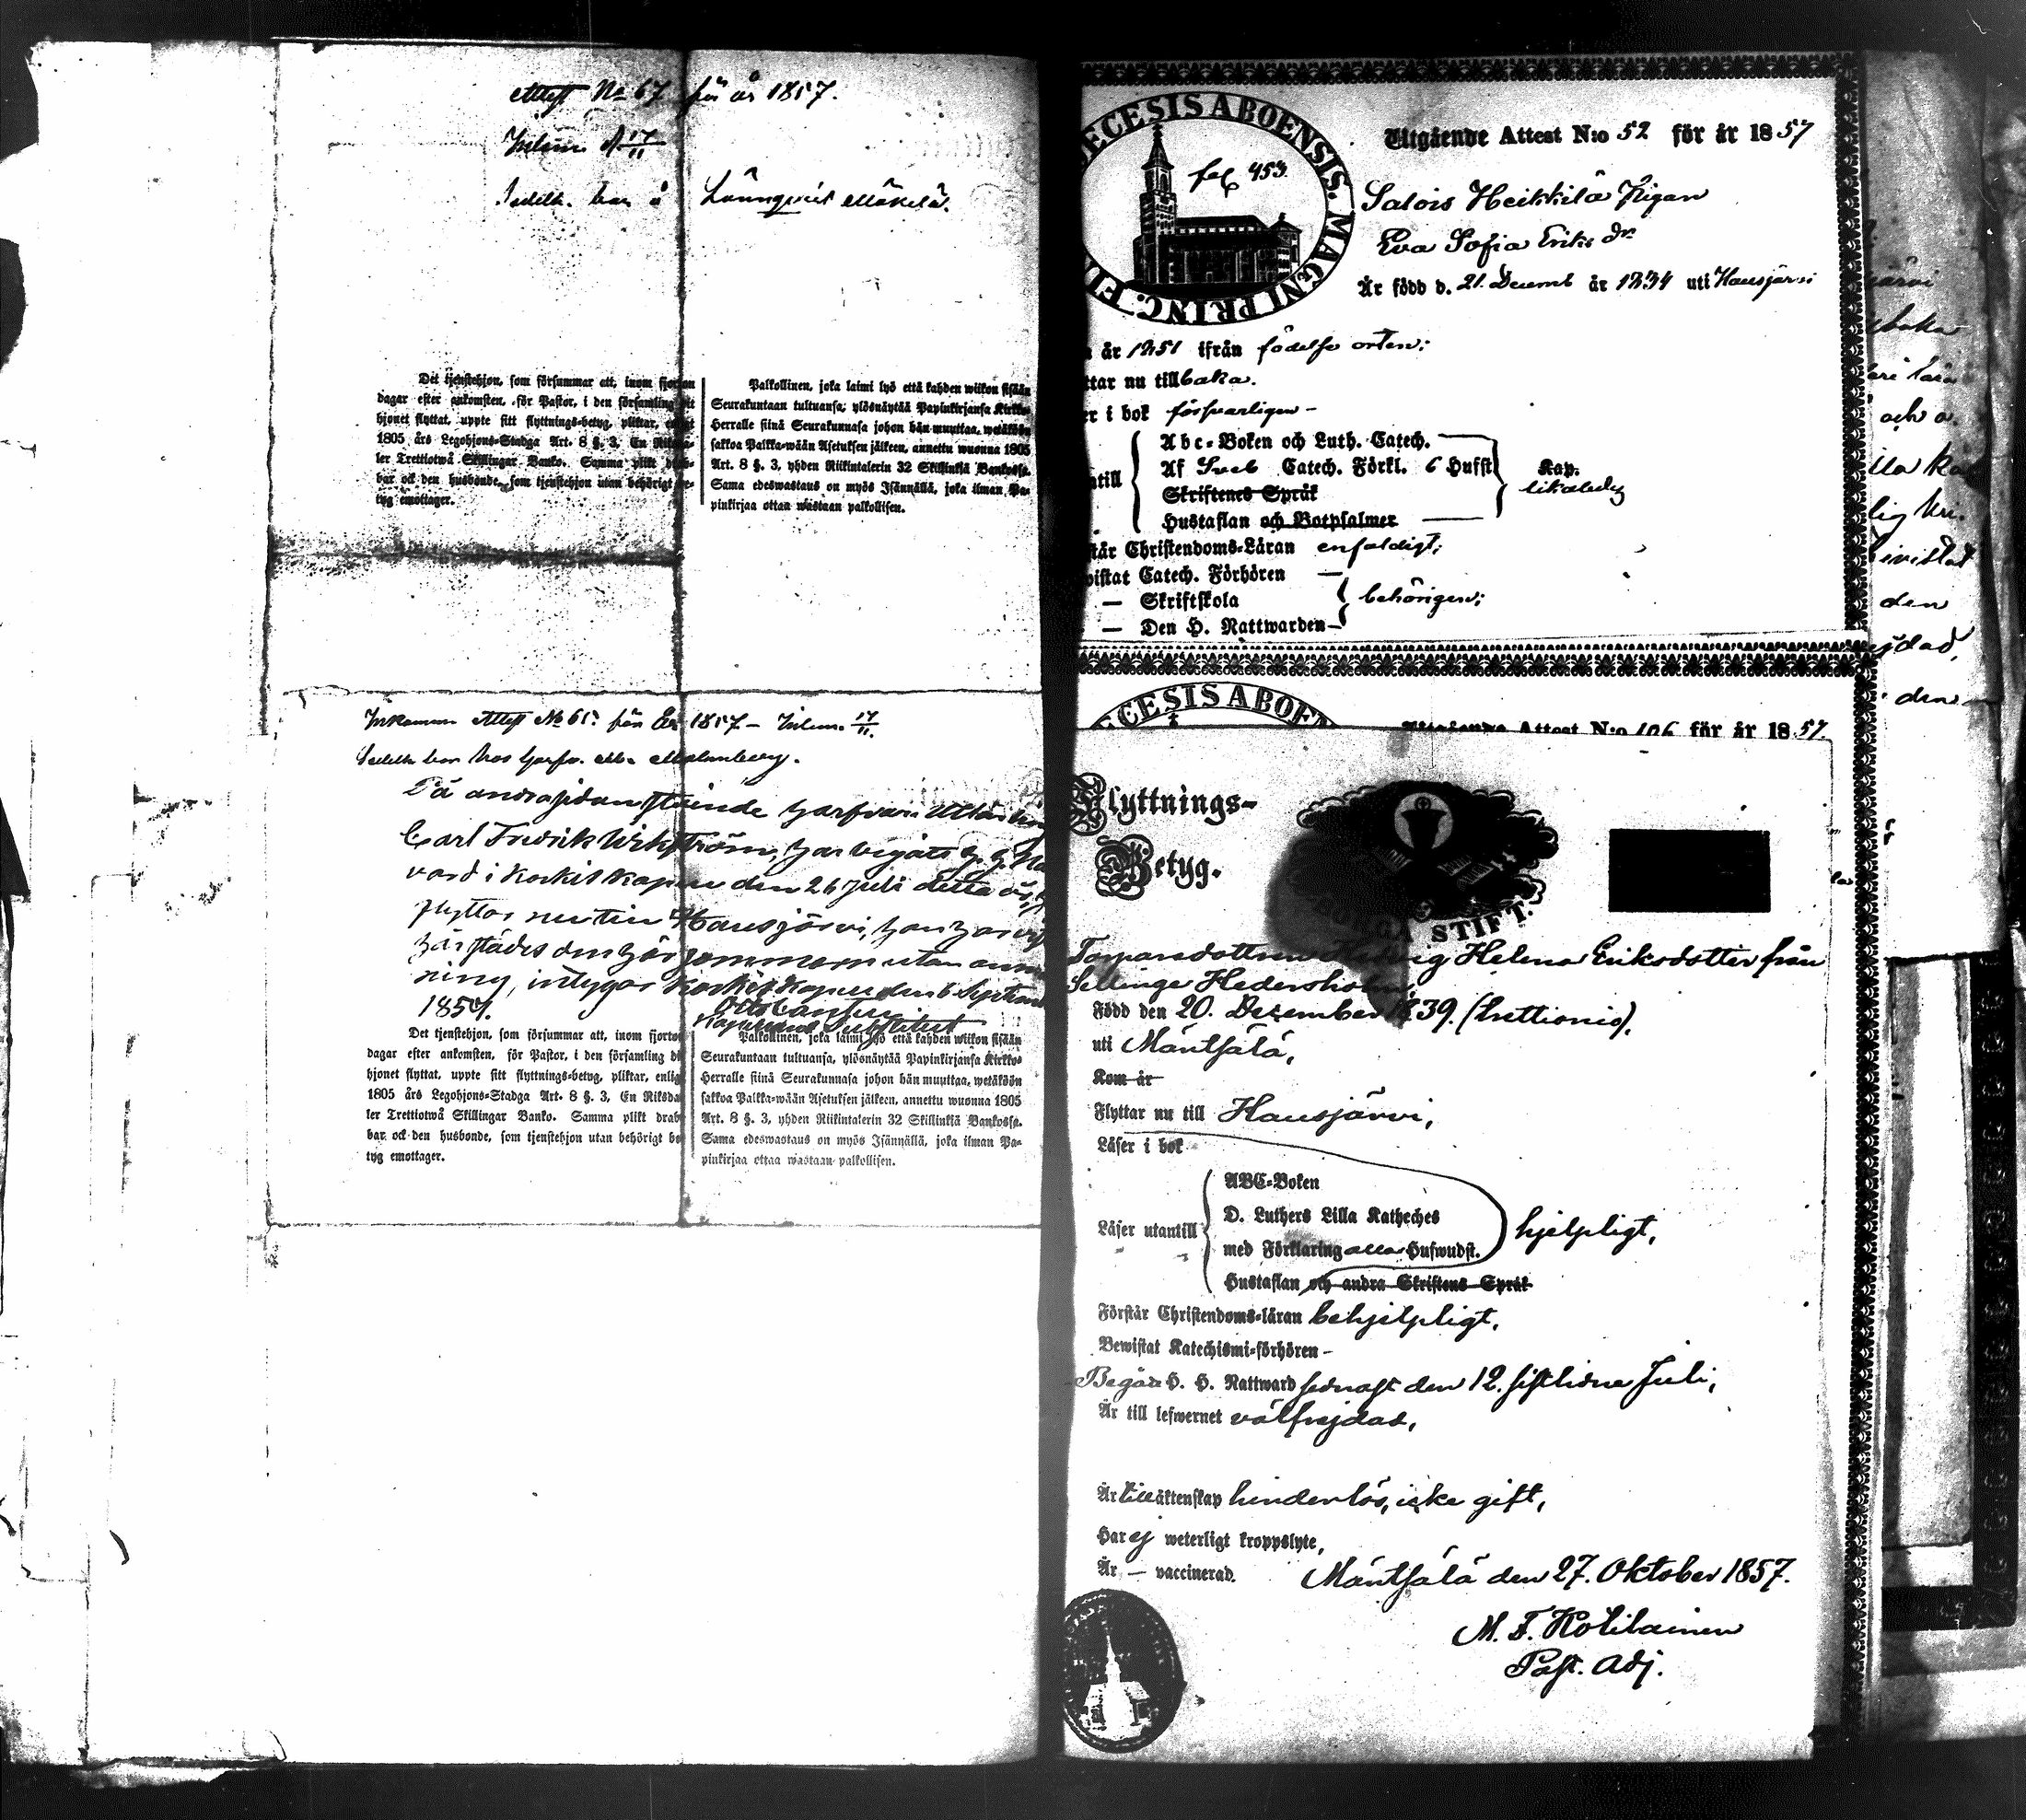 Attest No 67 för år 1857.
Inlem. d 17/11
Sedeln har å Lönnqvist Mäkelä.
Det tjenstehjon, som försummar att, inom fjorton
dagar efter ankomsten, för Pastor, i den församling dit
hjonet flyttat, uppte sitt flyttnings-betyg, pliktar, enligt
1805 års Legohjons-Stadga Art. 8 §. 3, En Riksda-
ler Trettiotwå Skillingar Banko. Samma plikt drab-
bar ock den husbonde, som tjenstehjon utan behörigt be-
tyg emottager.
Palkollinen, joka laimi lyö että kahden wiikon sisään
Seurakuntaan tultuansa, ylösnäytää Papinkirjansa Kirkko-
Herralle siinä Seurakunnasa johon hän muuttaa, wetäköön
sakkoa Palkka-wään Asetuksen jälkeen, annettu wuonna 1805
Art. 8 §. 3, yhden Riikintalerin 32 Skillinkiä Bankossa.
Sama edeswastaus on myös Isännällä, joka ilman Pa-
pinkirjaa ottaa wastaan palkollisen.
Inkommen Attest No 65 för År 1857 – Inlem. 17/11.
Sedeln har hos
På andra sidan stående
Carl Fredrik Wikström, har begått H. H. Natt
vard i Kärkis kapell den 26 Juli detta år,
flyttar nu till Hausjärvi, han har
härstädes den här sommaren utan
ning, intygar Kärkis Kapell den 6 Septemb
1857.
Kapellans Substitut
Det tjenstehjon, som försummar att, inom fjorto
dagar efter ankomsten, för Pastor, i den församling di
hjonet flyttat, uppte sitt flyttnings-betyg, pliktar, enlig
1805 års Legohjons-Stadga Art. 8 §. 3, En Riksda
ler Trettiotwå Skillingar Banko. Samma plikt drab
bar ock den husbonde, som tjenstehjon utan behörigt be
tyg emottager.
Palkollinen, joka laimi lyö että kahden wiikon sisään
Seurakuntaan tultuansa, ylösnäytää Papinkirjansa Kirkko-
Herralle siinä Seurakunnasa johon hän muuttaa, wetäköön
sakkoa Palkka-wään Asetuksen jälkeen, annettu wuonna 1805
Art. 8 §. 3, yhden Riikintalerin 32 Skillinkiä Bankossa.
Sama edeswastaus on myös Isännällä, joka ilman Pa-
pinkirjaa ottaa wastaan palkollisen.
ECESIS ABOENSIS. MAGNI PRINC. FI
fol 453
Utgående Attest N:o 52 för år 1857
Salois Heikkilä Pigan
Eva Sofia Eriks dr
Är född d. 21. Decemb år 1834 uti Hausjärvi
år 1851 ifrån födelse orten;
ttar nu till baka.
er i bok försvarligen –
till
Abc-Boken och Luth. Catech.
Af Sveb Catech. Förkl. 6 Hufst
Skriftenes Språk
Hustaflan och Botpsalmer
Kap.
likaledes
står Christendoms-Läran enfaldigt;
wistat Catech. Förhören —
— Skriftskola
— Den H. Nattwarden –
behörigen;
ECESIS ABOEN
Utgående Attest N:o 106 för år 1857.
Flyttnings-
Betyg.
BORGÅ STIFT.
Torparedottren Hedvig Helena Eriksdotter från
Sellinge Hedersholm,
Född den 20. Dezember 1839. (trettionio),
uti Mäntsälä,
Kom år
Flyttar nu till Hausjärvi,
Läser i bok
Läser utantill
ABC-Boken
D. Luthers Lilla Katheches
med Förklaring allas Hufwudst.
Hustaflan och andra Skriftens Språk
hjelpligt,
Förstår Christendoms-läran behjelpligt,
Bewistat Katechismi-förhören –
Begått H. H. Nattward sednast den 12. sistlidne Juli,
Är till lefwernet välfrejdad,
Är till äktenskap hinderlös, icke gift,
Har ej weterligt kroppslyte,
Är — vaccinerad.
Mäntsälä den 27. Oktober 1857.
M. F. Kotilainen
Past. Adj.
ärvi
och a
ivistat
den
jdad,
den